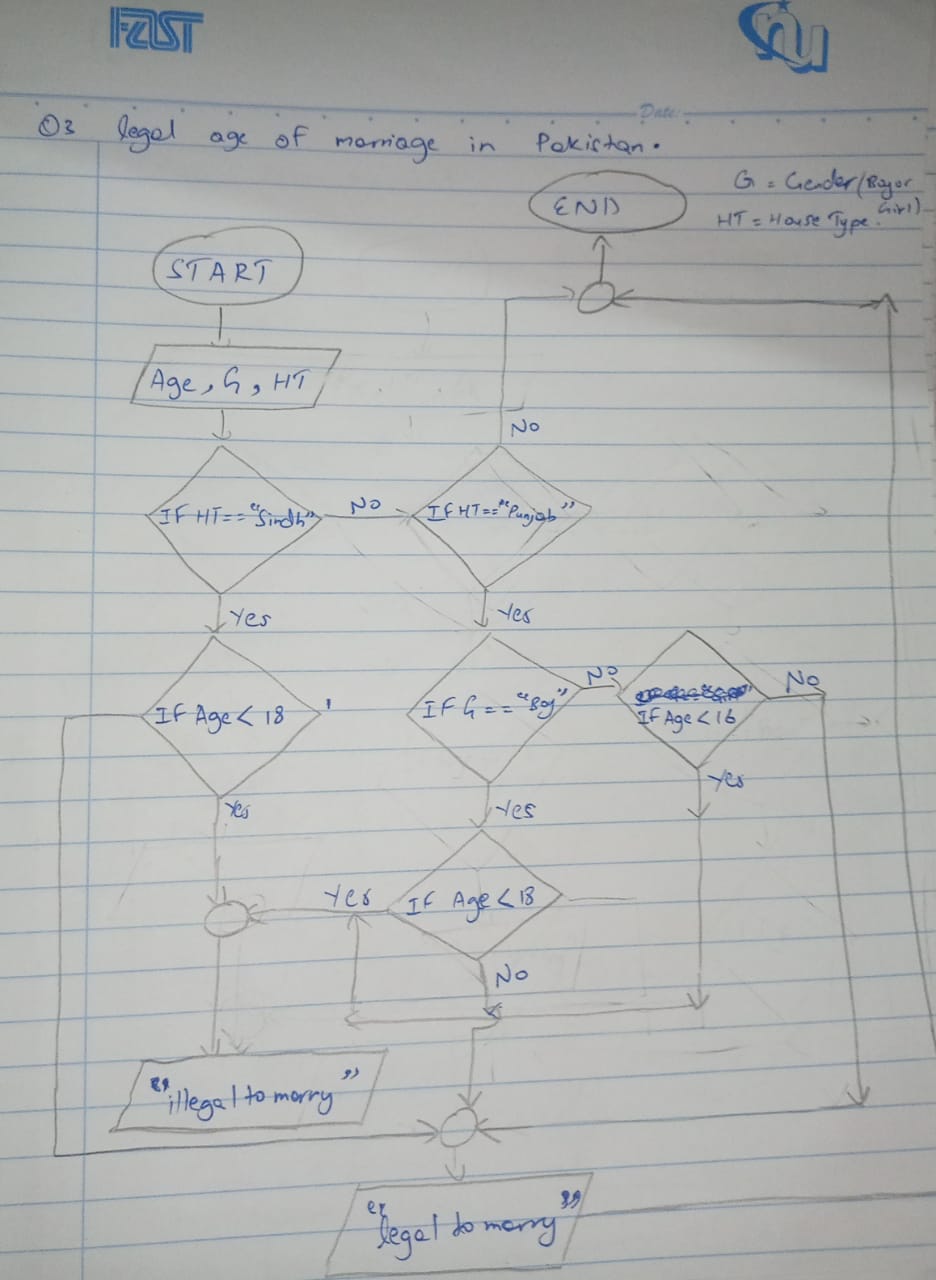 FAST
nu
Date:
Q3 legal age of marriage in Pakistan.
G = Gender (Boy or Girl)
HT = House Type.
END
START
Age, G, HT
No
IF HT == "Sindh"
No
IF HT == "Punjab"
Yes
Yes
IF Age < 18
IF G == "Boy"
No
IF Age < 16
No
Yes
Yes
Yes
Yes
IF Age < 18
No
"illegal to marry"
"legal to marry"